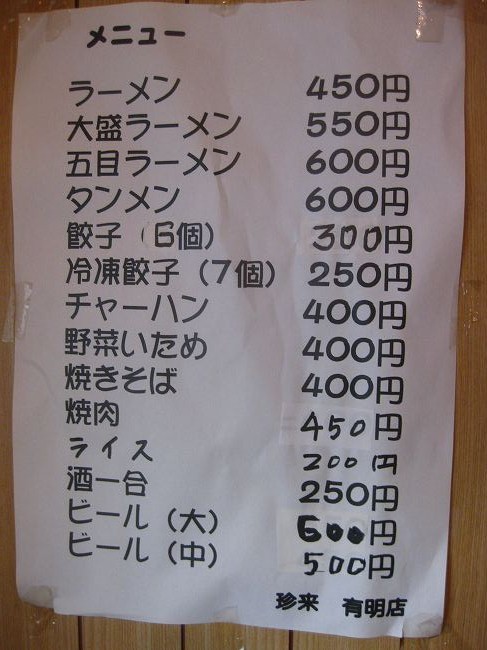 メニュー
ラーメン 450円
大盛ラーメン 550円
五目ラーメン 600円
タンメン 600円
餃子（6個） 300円
冷凍餃子（7個） 250円
チャーハン 400円
野菜いため 400円
焼きそば 400円
焼肉 450円
ライス 200円
酒一合 250円
ビール（大） 600円
ビール（中） 500円
珍来 有明店